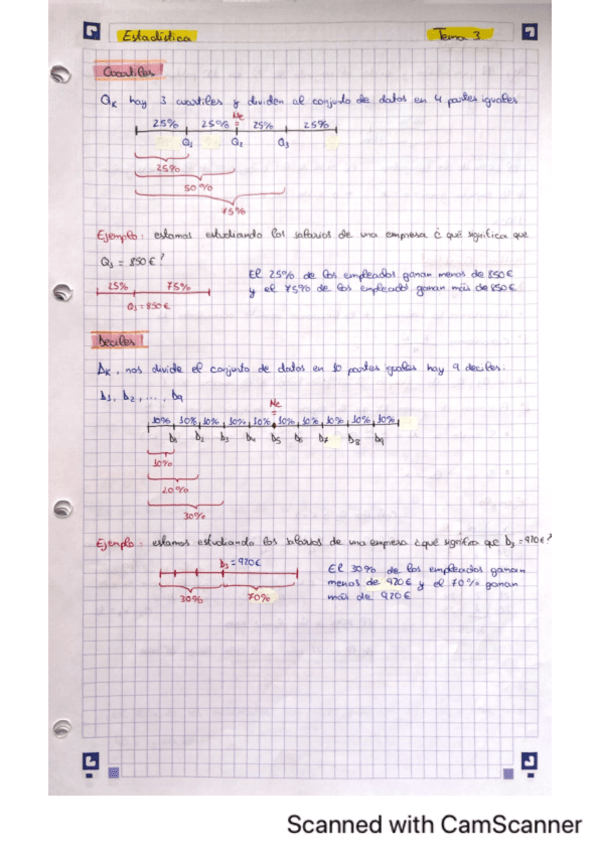 Estadística Tema 3
Cuartiles
Qk hay 3 cuartiles y dividen al conjunto de datos en 4 partes iguales
Me
25% 25% 25% 25%
Q1 Q2 Q3
25%
50%
75%
Ejemplo: estamos estudiando los salarios de una empresa ¿ qué significa que
= 850€?
25% 75%
= 850€
El 25% de los empleados ganan menos de 850€
y el 75% de los empleados ganan más de 850€
Deciles
Dk, nos divide el conjunto de datos en 10 partes iguales hay 9 deciles.
D1, D2, ..., D9
Me
10% 10% 10% 10% 10% 10% 10% 10% 10% 10%
D1 D2 D3 D4 D5 D6 D7 D8 D9
10%
20%
30%
Ejemplo: estamos estudiando los salarios de una empresa ¿qué significa que D3 = 920€?
D3 = 920€
30% 70%
El 30% de los empleados ganan
menos de 920€ y el 70% ganan
más de 920€
Scanned with CamScanner